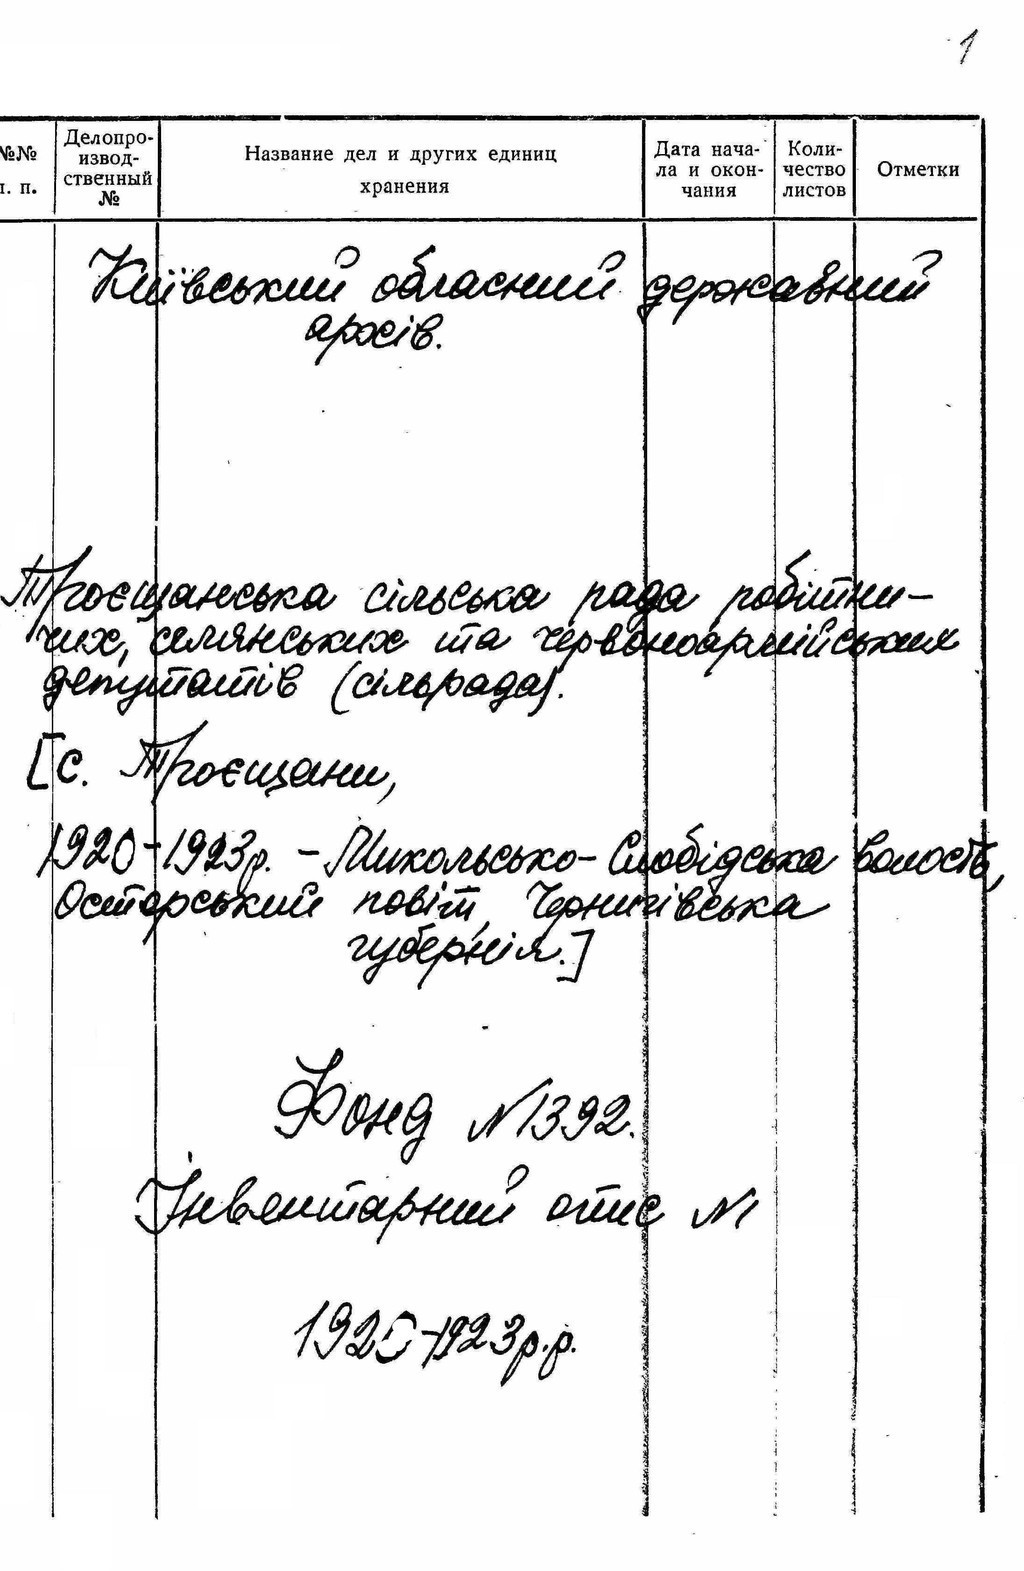 1
№№ п. п.
Делопро-
извод-
ственный
№
Название дел и других единиц
хранения
Дата нача-
ла и окон-
чания
Коли-
чество
листов
Отметки
Київський обласний державний
архів.
Троєщанська сільська рада робітни-
чих, селянських та червоноармійських
депутатів (сільрада).
[с. Троєщани,
1920-1923р. - Микольсько-Слобідська волость,
Остёрський повіт, Чернигівська
губернія.]
Фонд №1392.
Інвентарний опис №1
1920-1923р.р.